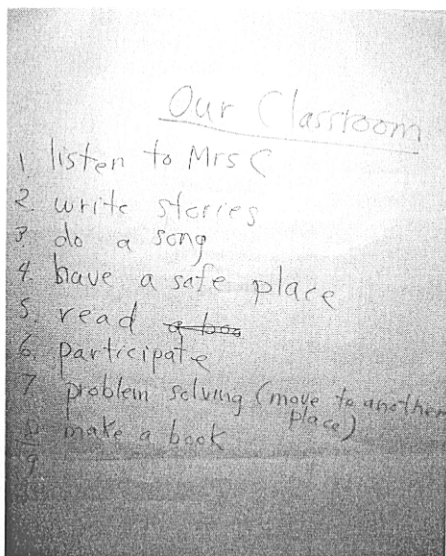 Our Classroom
1. listen to Mrs C
2. write stories
3. do a song
4. have a safe place
5. read a boo
6. participate
7. problem solving (move to another
place)
8. make a book
9